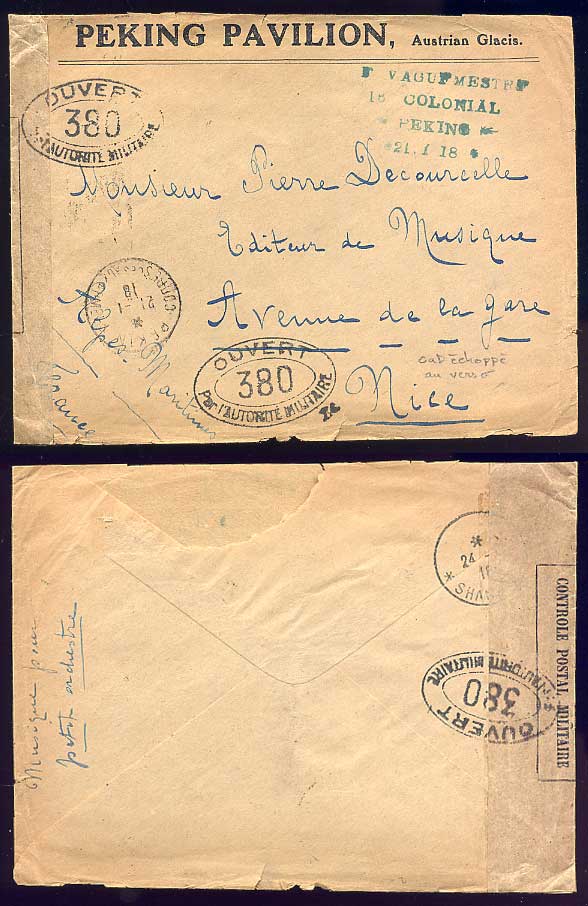 PEKING PAVILION, Austrian Glacis.
VAGUEMESTRE
COLONIAL
PEKING
21.1 18
OUVERT
380
PAR L'AUTORITÉ MILITAIRE
Monsieur Pierre Decourcelle
Editeur de Musique
Avenue de la gare
Nice
Alpes-Maritimes
France
21 - 1
18
OUVERT
380
Par l'AUTORITÉ MILITAIRE
cat échoppé
au verso
24
18
SHANG
CONTROLE POSTAL MILITAIRE
OUVERT
380
L'AUTORITÉ MILITAIRE
Musique pour
petit orchestre